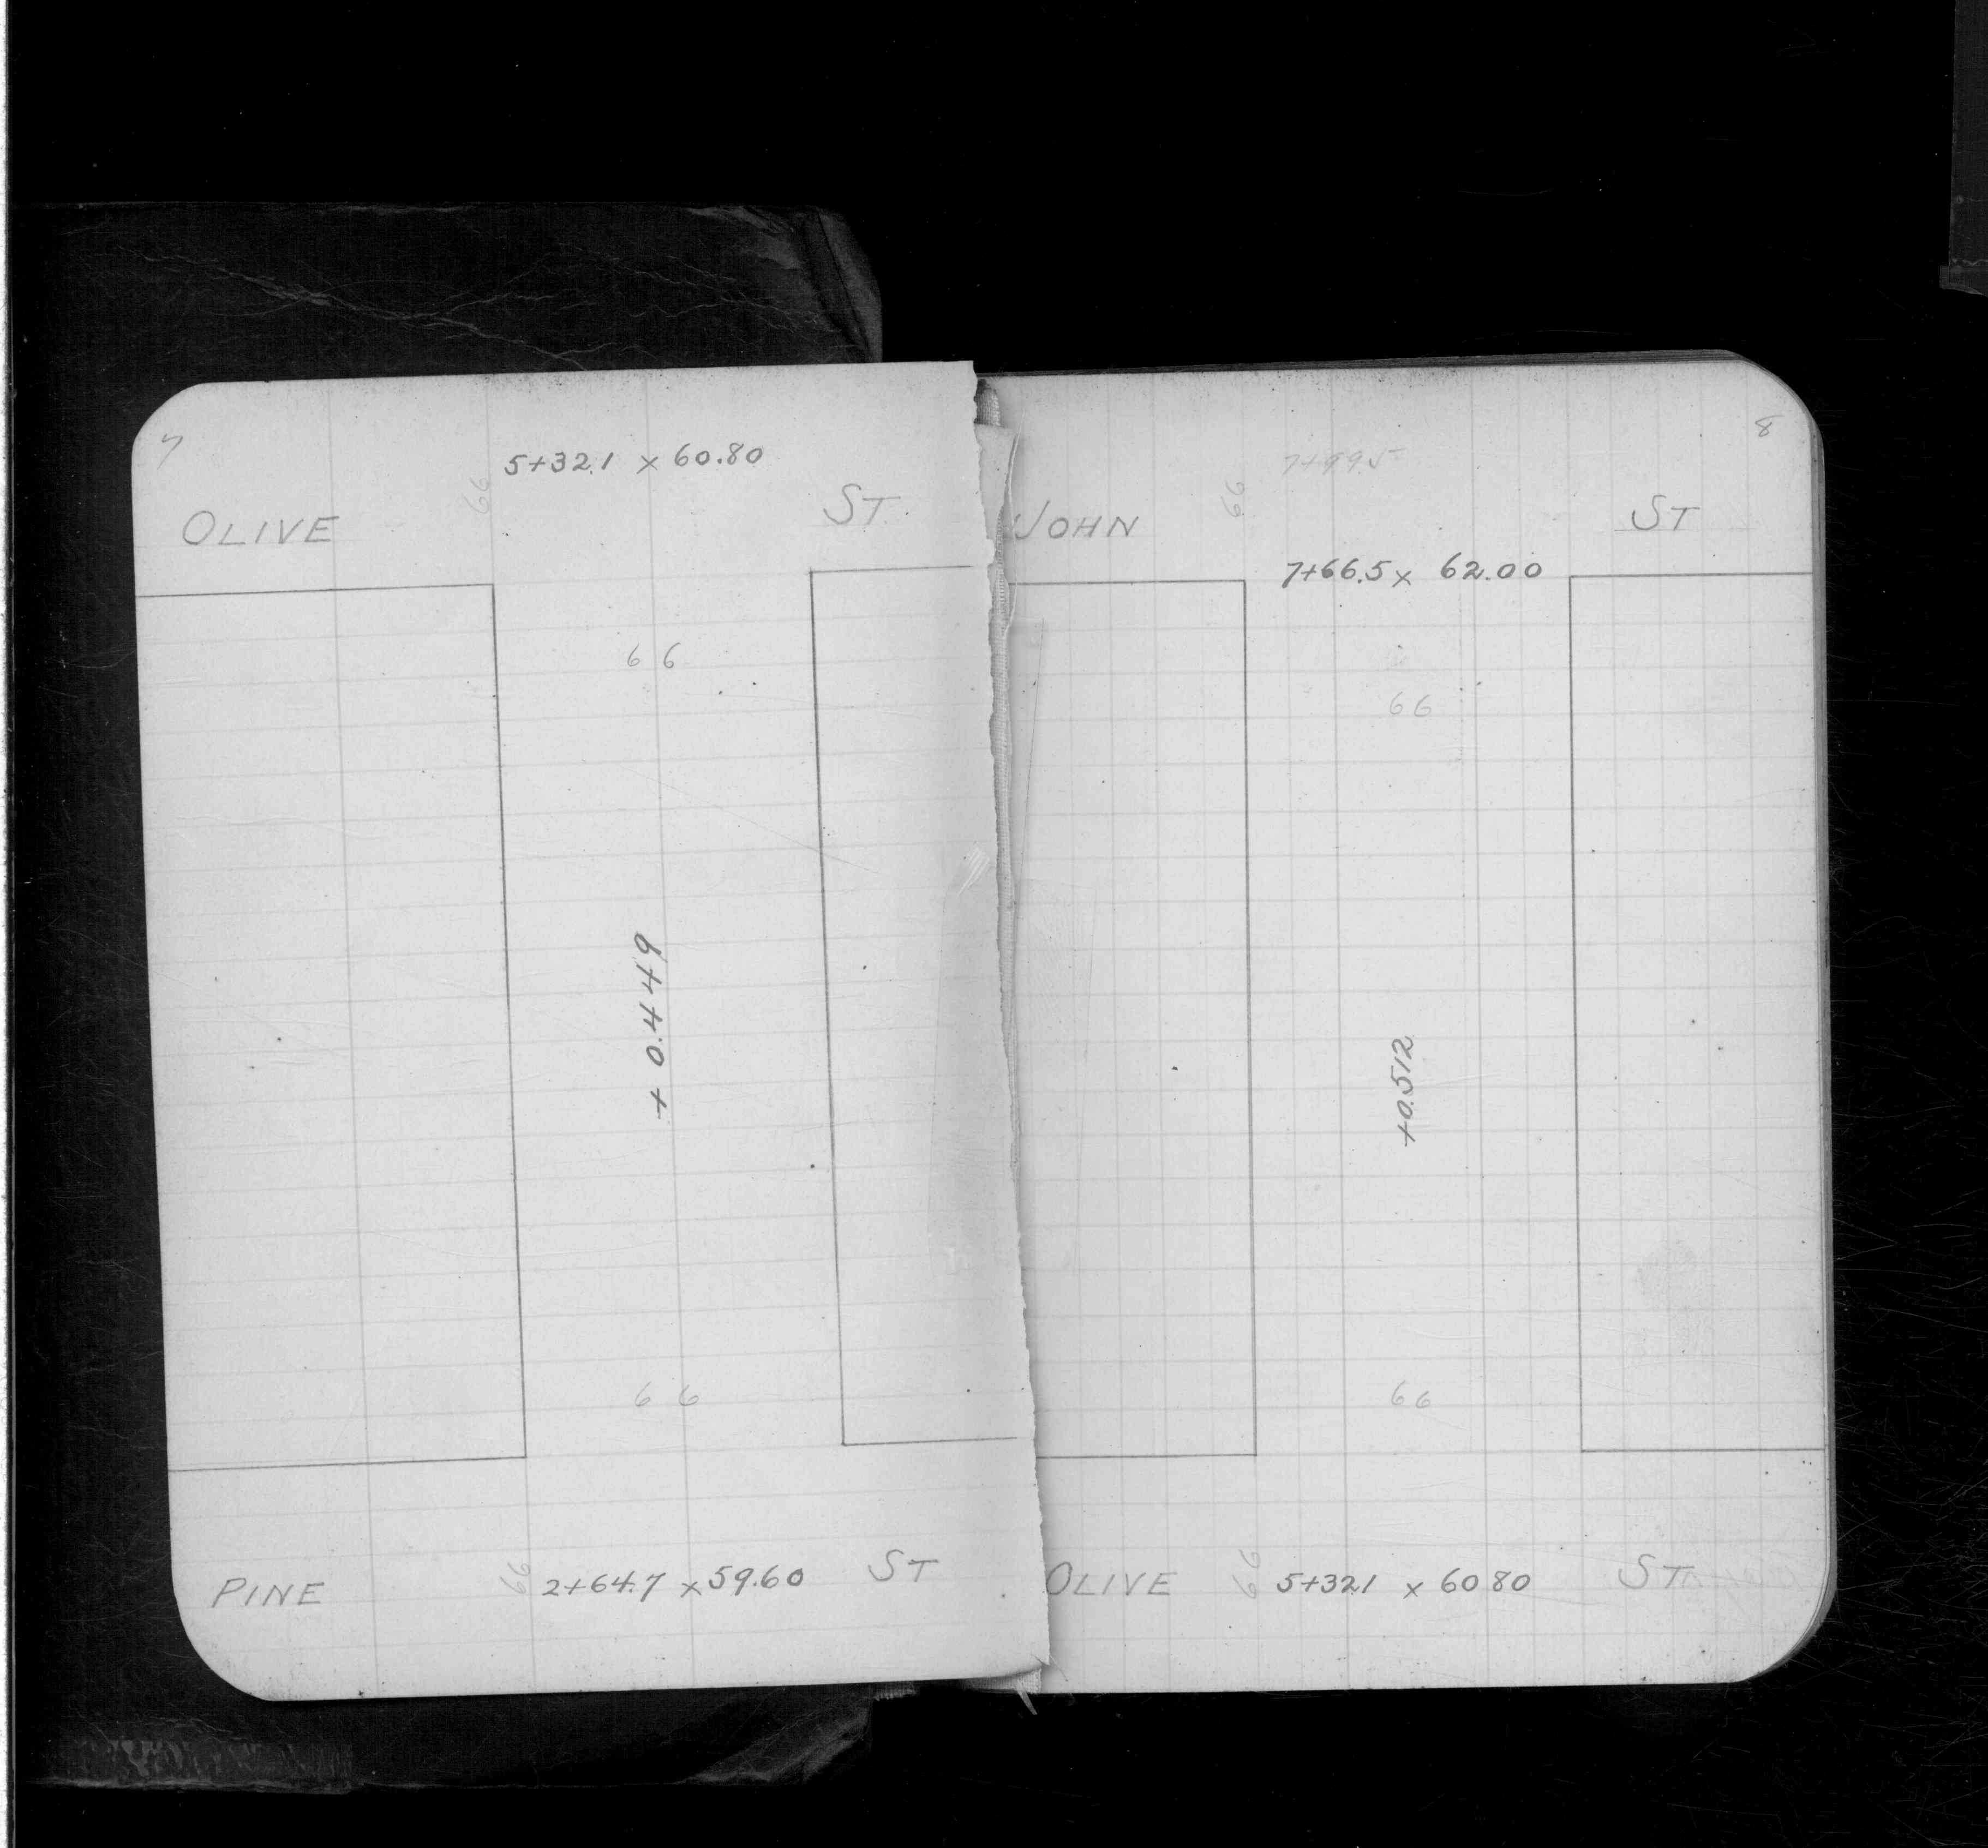 7
5+32.1 x 60.80
OLIVE 66 ST.
66
+ 0.449
66
PINE 66 2+64.7 x 59.60 ST
8
7+99.5
JOHN 66 ST
7+66.5 x 62.00
66
+0.512
66
OLIVE 66 5+32.1 x 60 80 ST